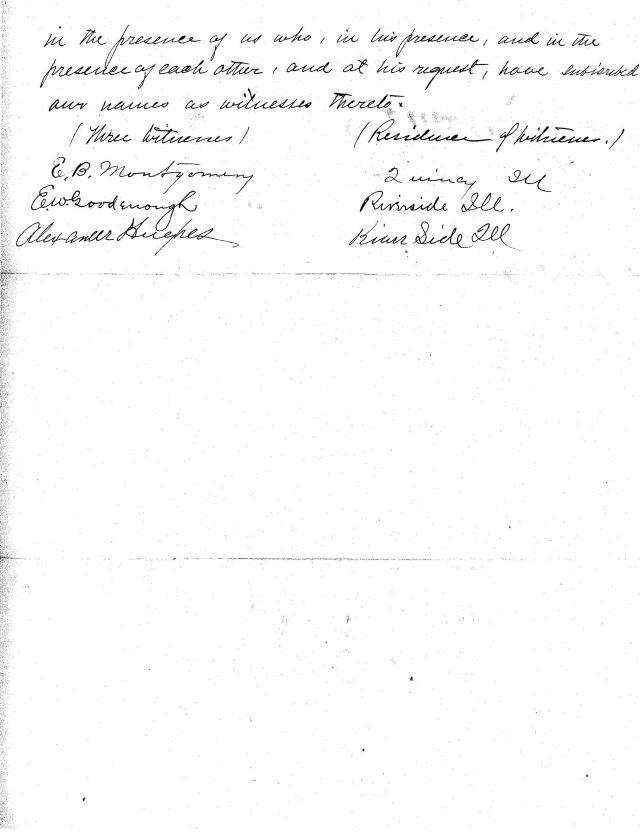 in the presence of us who, in his presence, and in the
presence of each other, and at his request, have subscribed
our names as witnesses thereto.
(Three Witnesses) (Residence of witnesses.)
E. B. Montgomery Quincy Ill
E.W. Goodenough Riverside Ill.
Alexander River Side Ill